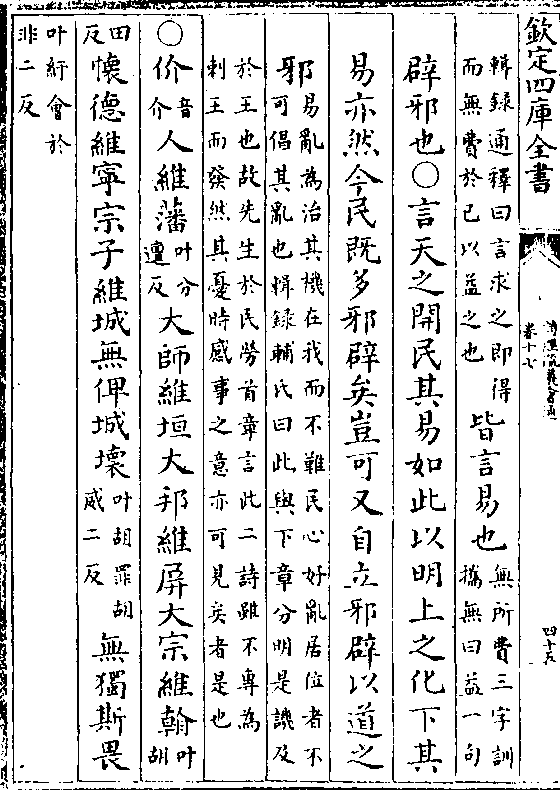 欽定四庫全書
詩經疏義會通
卷十七
四十五
輯錄通釋曰言求之即得
而無費於已以益之也
皆言易也
無所費三字訓
攜無曰益一句
辟邪也○言天之開民其易如此以明上之化下其
易亦然今民既多邪辟矣豈可又自立邪辟以道之
邪
易亂為治其機在我而不難民心好亂居位者不
可倡其亂也輯錄輔氏曰此與下章分明是譏及
於王也故先生於民勞首章言此二詩雖不專為
刺王而發然其憂時感事之意亦可見矣者是也
○价
音
介
人維藩
叶分
邅反
大師維垣大邦維屏大宗維翰
叶
胡
田
反
懷德維寧宗子維城無俾城壞
叶胡罪胡
威二反
無獨斯畏
叶紆會於
非二反